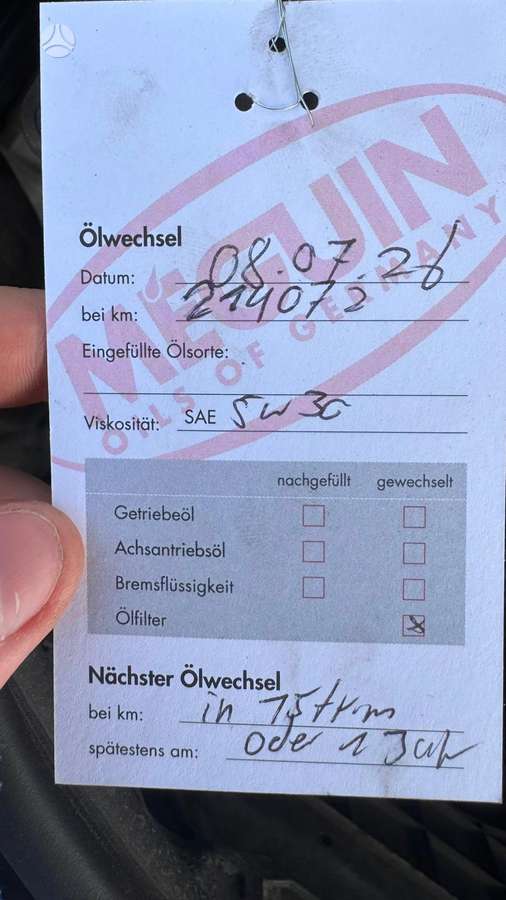 MEGUIN
OILS OF GERMANY
Ölwechsel
Datum: 08.07.26
bei km: 214072
Eingefüllte Ölsorte:
Viskosität: SAE 5w30
nachgefüllt gewechselt
Getriebeöl
Achsantriebsöl
Bremsflüssigkeit
Ölfilter
Nächster Ölwechsel
bei km: in 15tkm
spätestens am: oder 1 Jahr